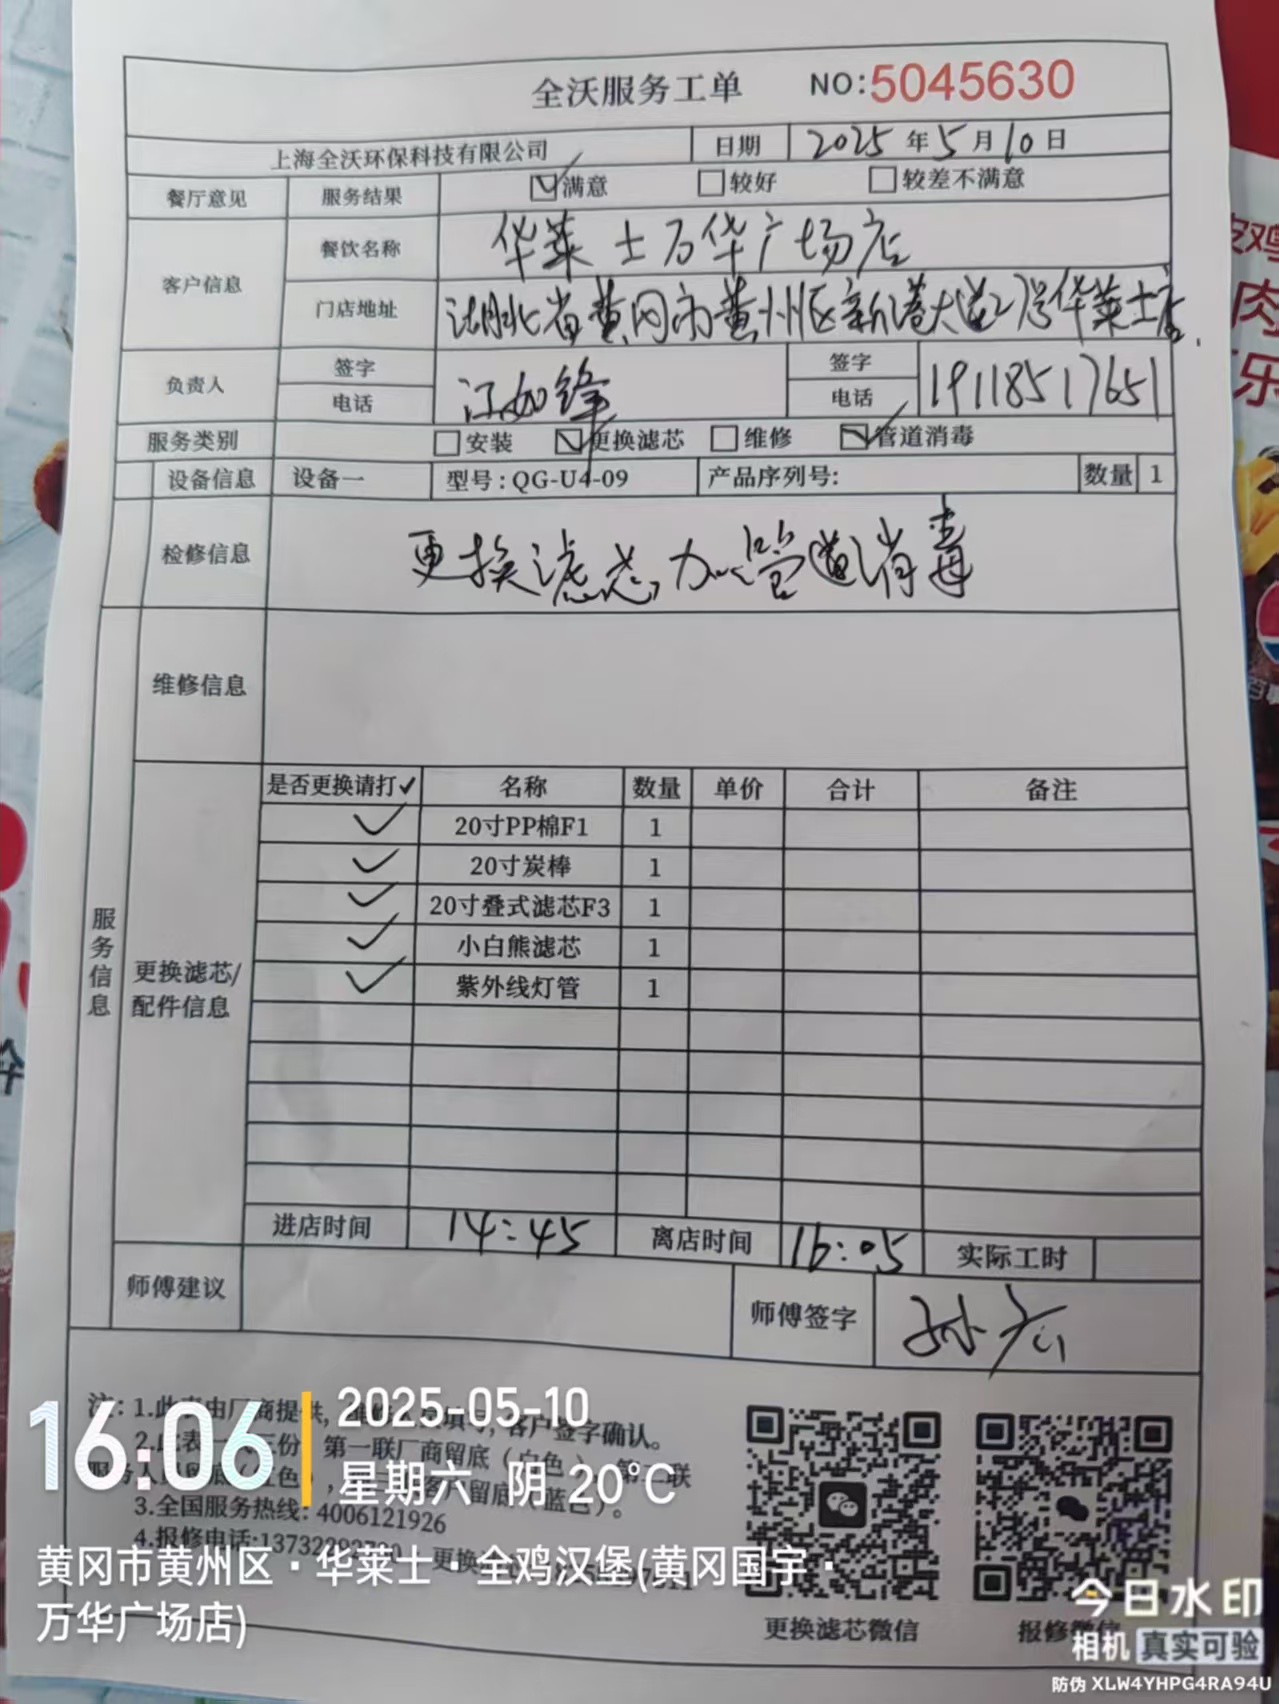 全沃服务工单 NO:5045630
上海全沃环保科技有限公司 日期 2025年5月10日
餐厅意见 服务结果 ☑满意 □较好 □较差不满意
客户信息 餐饮名称 华莱士万华广场店
门店地址 湖北省黄冈市黄州区新港大道27号华莱士店
负责人 签字 签字
电话 电话 19118517651
服务类别 □安装 ☑更换滤芯 □维修 ☑管道消毒
设备信息 设备一 型号:QG-U4-09 产品序列号: 数量 1
检修信息 更换滤芯加管道消毒
维修信息
服务信息
更换滤芯/
配件信息
是否更换请打✓ 名称 数量 单价 合计 备注
✓ 20寸PP棉F1 1
✓ 20寸炭棒 1
✓ 20寸叠式滤芯F3 1
✓ 小白熊滤芯 1
✓ 紫外线灯管 1
进店时间 14:45 离店时间 16:05 实际工时
师傅建议 师傅签字
注: 1.此表由厂商提供, 客户签字确认。
2.此表 三份 第一联厂商留底(白色) 第二联
留底(蓝色)。
3.全国服务热线: 4006121926
4.报修电话:13732292 更换
更换滤芯微信 报修微信
16:06
2025-05-10
星期六 阴 20°C
黄冈市黄州区·华莱士·全鸡汉堡(黄冈国宇·
万华广场店)
今日水印
相机 真实可验
防伪 XLW4YHPG4RA94U